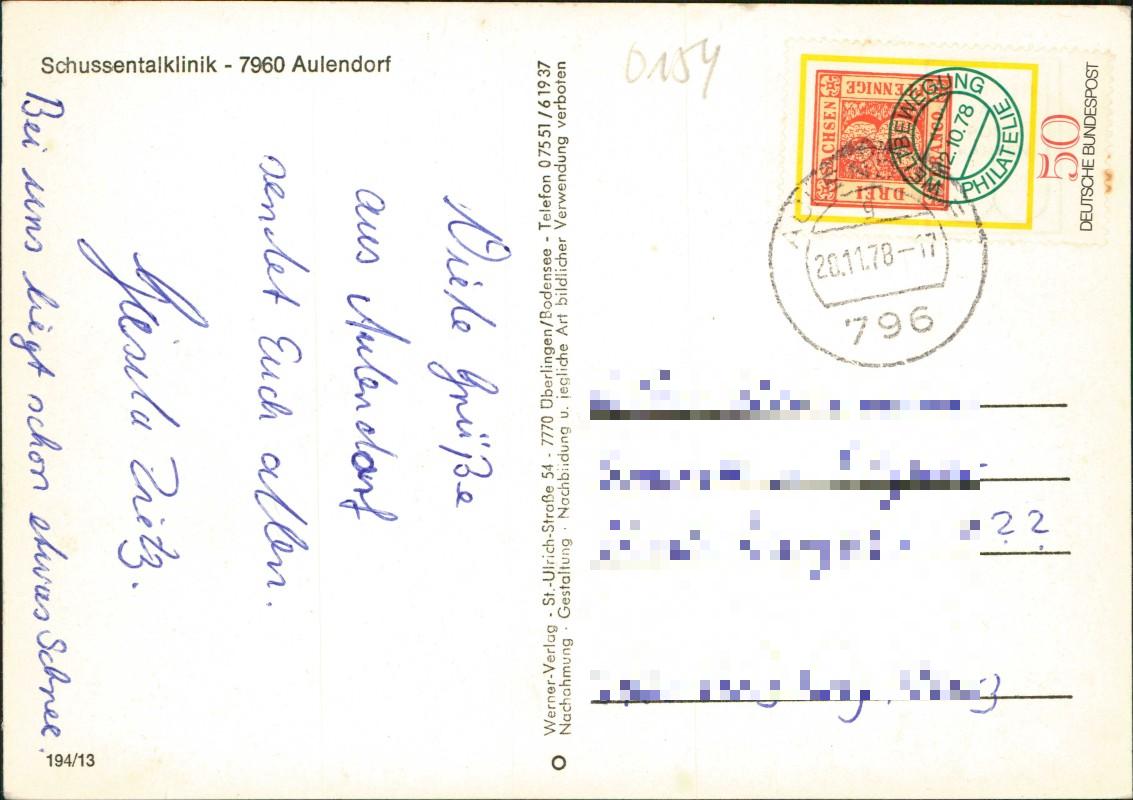 Schussentalklinik - 7960 Aulendorf
Viele Grüße
aus Aulendorf
sendet Euch allen.
Gisela
Bei uns liegt schon etwas Schnee.
194/13
Werner-Verlag - St.-Ulrich-Straße 54 - 7770 Überlingen/Bodensee - Telefon 07551/61937
Nachahmung · Gestaltung · Nachbildung u. jegliche Art bildlicher Verwendung verboten
0154
DREI
PFENNIGE
SACHSEN
FRANCO
WELTBEWEGUNG
PHILATELIE
12.10.78
50
DEUTSCHE BUNDESPOST
g
20.11.78-17
796
??